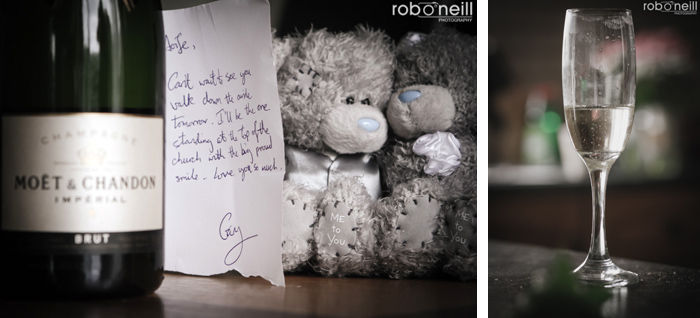 rob o'neill
PHOTOGRAPHY
Can't wait to see you
walk down the aisle
tomorrow. I'll be the one
standing at the top of the
church with the big proud
smile. Love you so much.
Gary
CHAMPAGNE
MOËT & CHANDON
IMPÉRIAL
BRUT
ME
to
You
rob o'neill
PHOTOGRAPHY